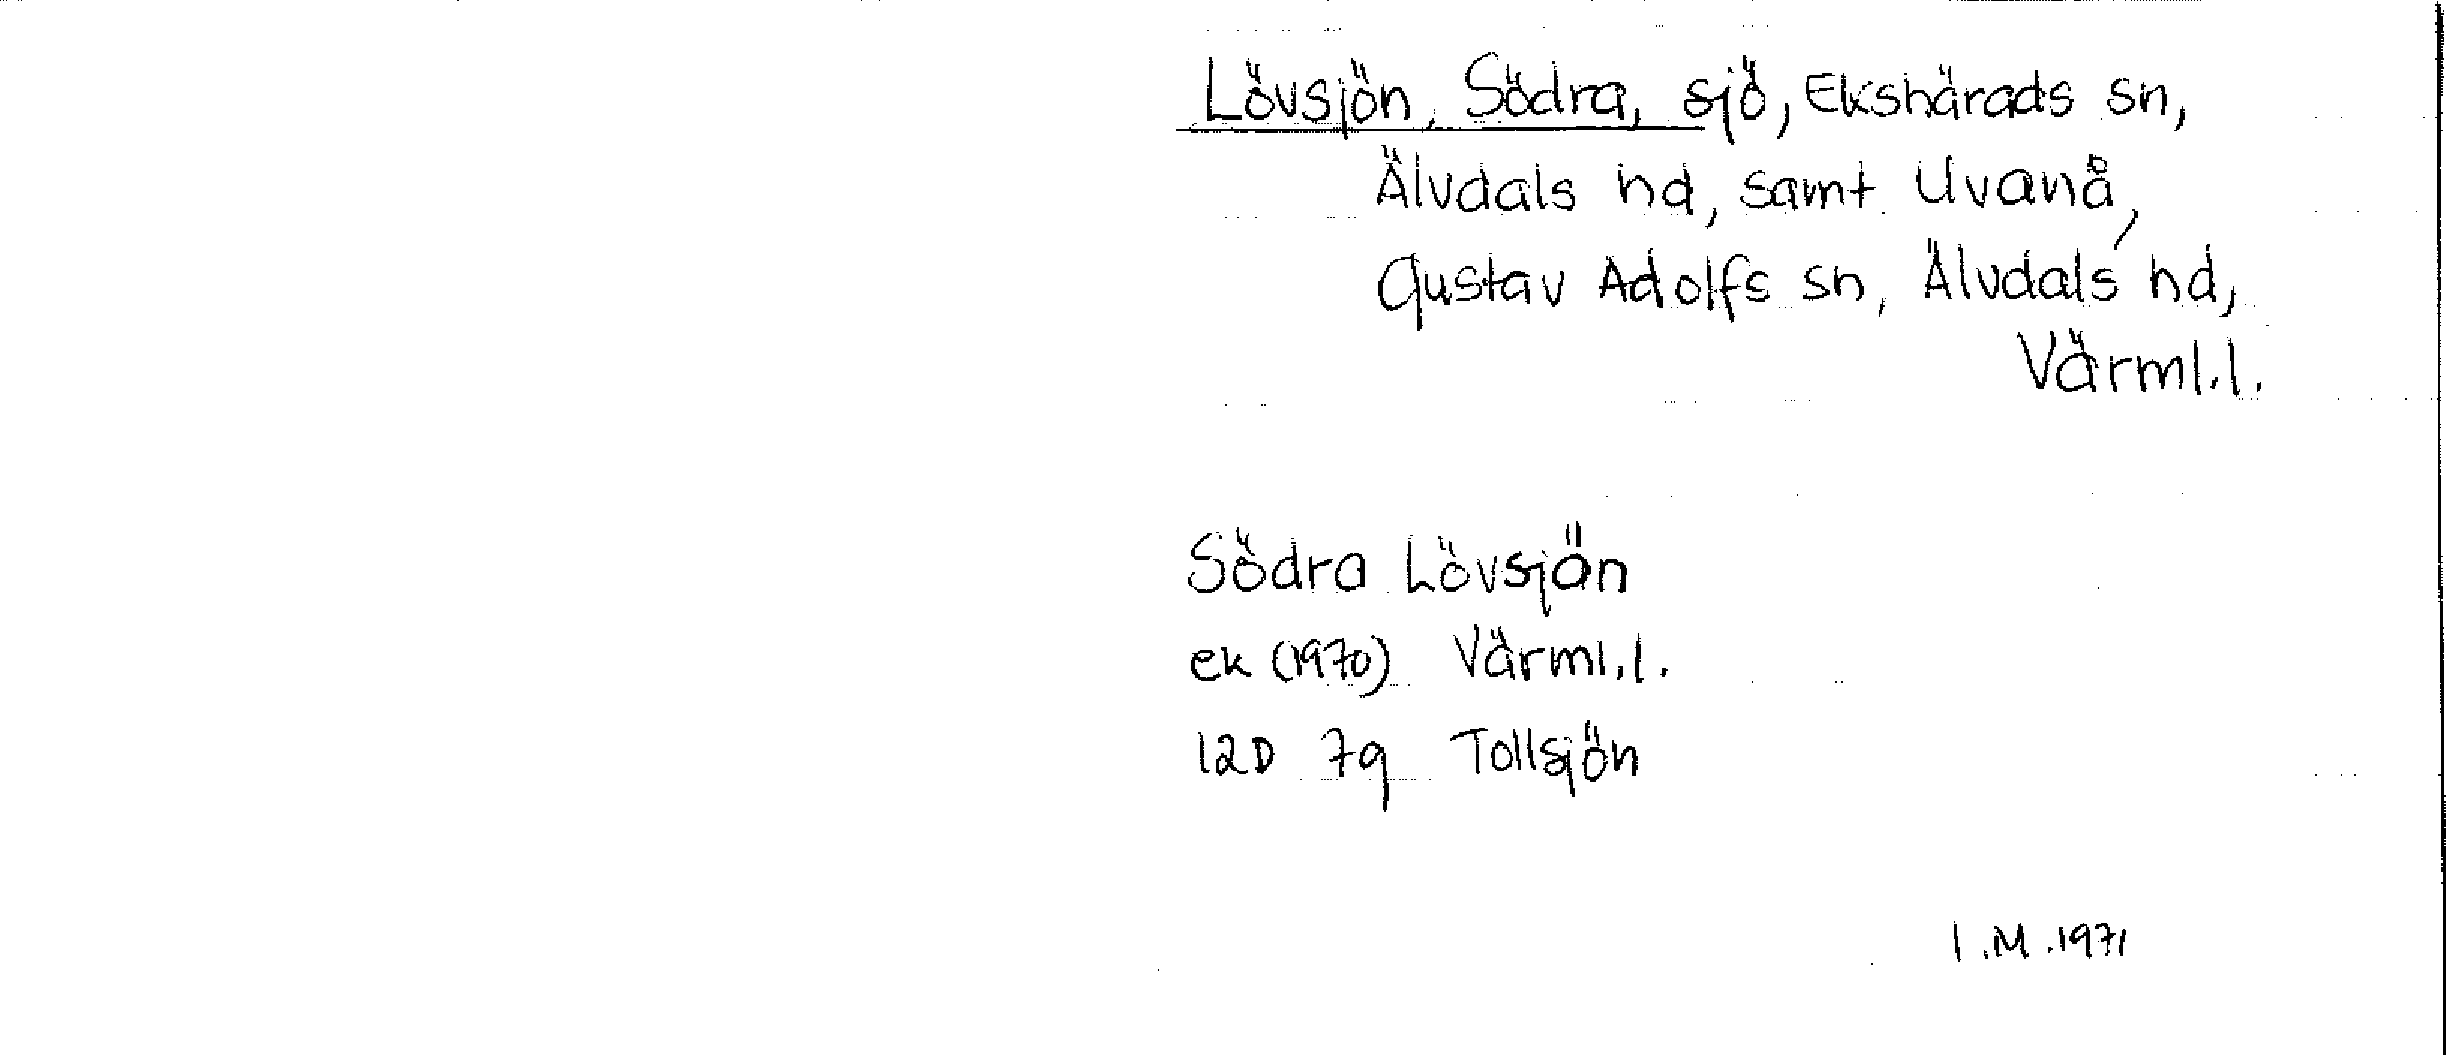 Lövsjön, Södra, sjö, Ekshärads sn,
Älvdals hd, samt Uvanå,
Gustav Adolfs sn, Älvdals hd,
Värml.l.
Södra Lövsjön
ek (1970) Värml.l.
12D 7g Tollsjön
I.M.1971